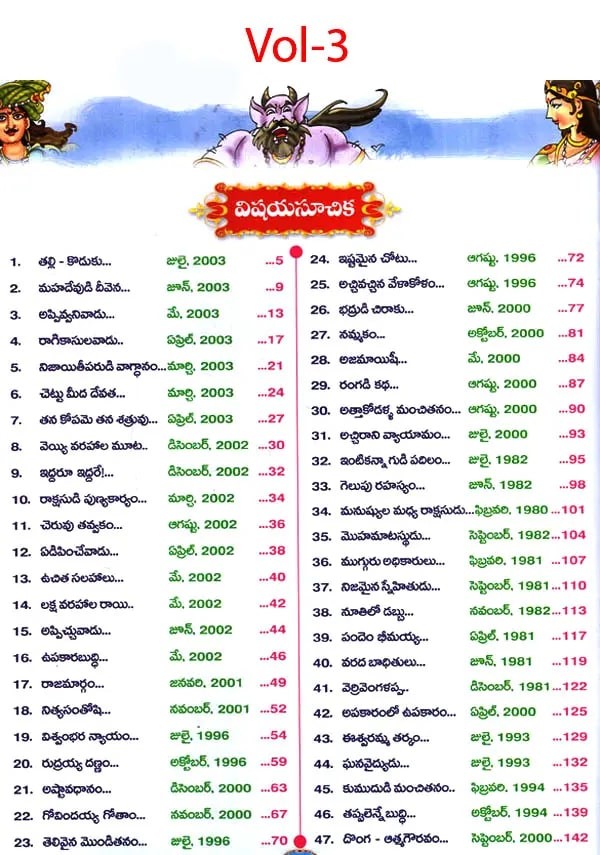 Vol-3
విషయసూచిక
1. తల్లి - కొడుకు... జులై, 2003 ...5
2. మహదేవుడి దీవెన... జూన్, 2003 ...9
3. అప్పివ్వనివాడు... మే, 2003 ...13
4. రాగికాసులవాడు.. ఏప్రిల్, 2003 ...17
5. నిజాయితీపరుడి వాగ్ధానం... మార్చి, 2003 ...21
6. చెట్టు మీద దేవత... మార్చి, 2003 ...24
7. తన కోపమె తన శత్రువు... ఏప్రిల్, 2003 ...27
8. వెయ్యి వరహాల మూట.. డిసెంబర్, 2002 ...30
9. ఇద్దరూ ఇద్దరే!... డిసెంబర్, 2002 ...32
10. రాక్షసుడి పుణ్యకార్యం... మార్చి, 2002 ...34
11. చెరువు తవ్వకం... ఆగష్టు, 2002 ...36
12. ఏడిపించేవాడు... ఏప్రిల్, 2002 ...38
13. ఉచిత సలహాలు... మే, 2002 ...40
14. లక్ష వరహాల రాయి.. మే, 2002 ...42
15. అప్పిచ్చువాడు... జూన్, 2002 ...44
16. ఉపకారబుద్ధి... మే, 2002 ...46
17. రాజమార్గం... జనవరి, 2001 ...49
18. నిత్యసంతోషి... నవంబర్, 2001 ...52
19. విశ్వంభర న్యాయం... జులై, 1996 ...54
20. రుద్రయ్య దణ్ణం... అక్టోబర్, 1996 ...59
21. అష్టావధానం... డిసెంబర్, 2000 ...63
22. గోవిందయ్య గోతాం... నవంబర్, 2000 ...67
23. తెలివైన మొండితనం... జులై, 1996 ...70
24. ఇష్టమైన చోటు... ఆగష్టు, 1996 ...72
25. అచ్చివచ్చిన వేళాకోళం... ఆగష్టు, 1996 ...74
26. భద్రుడి చిరాకు... జూన్, 2000 ...77
27. నమ్మకం... అక్టోబర్, 2000 ...81
28. అజమాయిషీ... మే, 2000 ...84
29. రంగడి కథ... ఆగష్టు, 2000 ...87
30. అత్తాకోడళ్ళ మంచితనం... ఆగష్టు, 2000 ...90
31. అచ్చిరాని వ్యాయామం... జులై, 2000 ...93
32. ఇంటికన్నా గుడి పదిలం... జులై, 1982 ...95
33. గెలుపు రహస్యం... జూన్, 1982 ...98
34. మనుష్యుల మధ్య రాక్షసుడు...ఫిబ్రవరి, 1980 ...101
35. మొహమాటస్థుడు... సెప్టెంబర్, 1982...104
36. ముగ్గురు అధికారులు... ఫిబ్రవరి, 1981 ...107
37. నిజమైన స్నేహితుడు... సెప్టెంబర్, 1981...110
38. నూతిలో డబ్బు... నవంబర్, 1982...113
39. పందెం భీమయ్య... ఏప్రిల్, 1981 ...117
40. వరద బాధితులు... జూన్, 1981 ...119
41. వెర్రివెంగళప్ప.. డిసెంబర్, 1981...122
42. అపకారంలో ఉపకారం... ఏప్రిల్, 2000 ...125
43. ఈశ్వరమ్మ తర్కం... జులై, 1993 ...129
44. ఘనవైద్యుడు... జులై, 1993 ...132
45. కుముదుడి మంచితనం.. ఫిబ్రవరి, 1994 ...135
46. తప్పులెన్నే బుద్ధి... అక్టోబర్, 1994 ...139
47. దొంగ - ఆత్మగౌరవం... సెప్టెంబర్, 2000...142